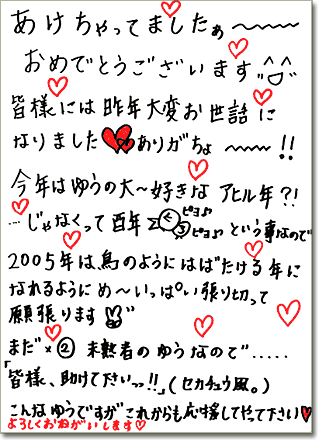 あけちゃってましたぁ〜〜〜〜
おめでとうございます"
皆様には昨年大変お世話に
なりました♥♥ありがちょ〜〜〜!!
今年はゆうの大〜好きなアヒル年?!
…じゃなくって酉年 ピヨ♪ ピヨ♪ という事なので
2005年は、鳥のようにはばたける年に
なれるようにめ〜いっぱい張り切って
願張ります
まだ×②未熟者のゆうなので"……
「皆様、助けて下さいっ!!」(セカチュウ風。)
こんなゆうですがこれからも応援して下さい♥
よろしくおねがいします♡